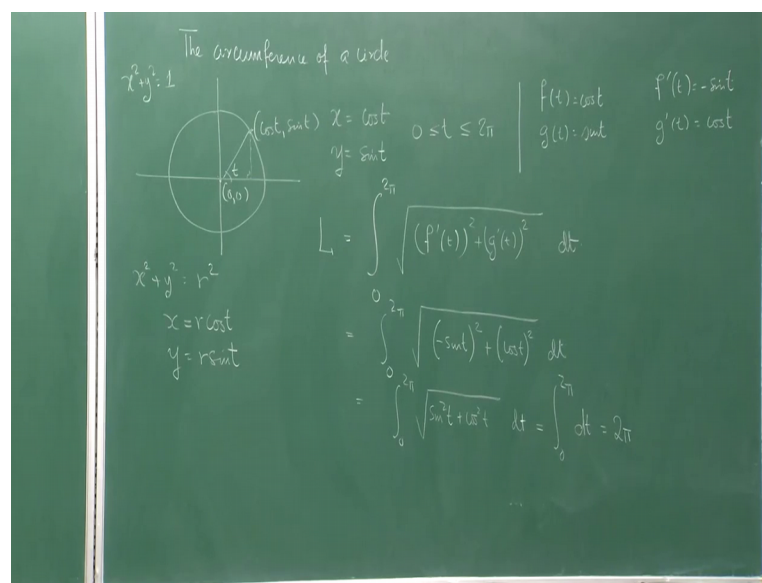 The circumference of a circle
x² + y² = 1
(cost, sint)
t
(0,0)
x = cost
y = sint
0 ≤ t ≤ 2π
f(t) = cost
g(t) = sint
f'(t) = -sint
g'(t) = cost
L = ∫₀^{2π} √((f'(t))² + (g'(t))²) dt
= ∫₀^{2π} √((-sint)² + (cost)²) dt
= ∫₀^{2π} √(sin²t + cos²t) dt = ∫₀^{2π} dt = 2π
x² + y² = r²
x = rcost
y = rsint